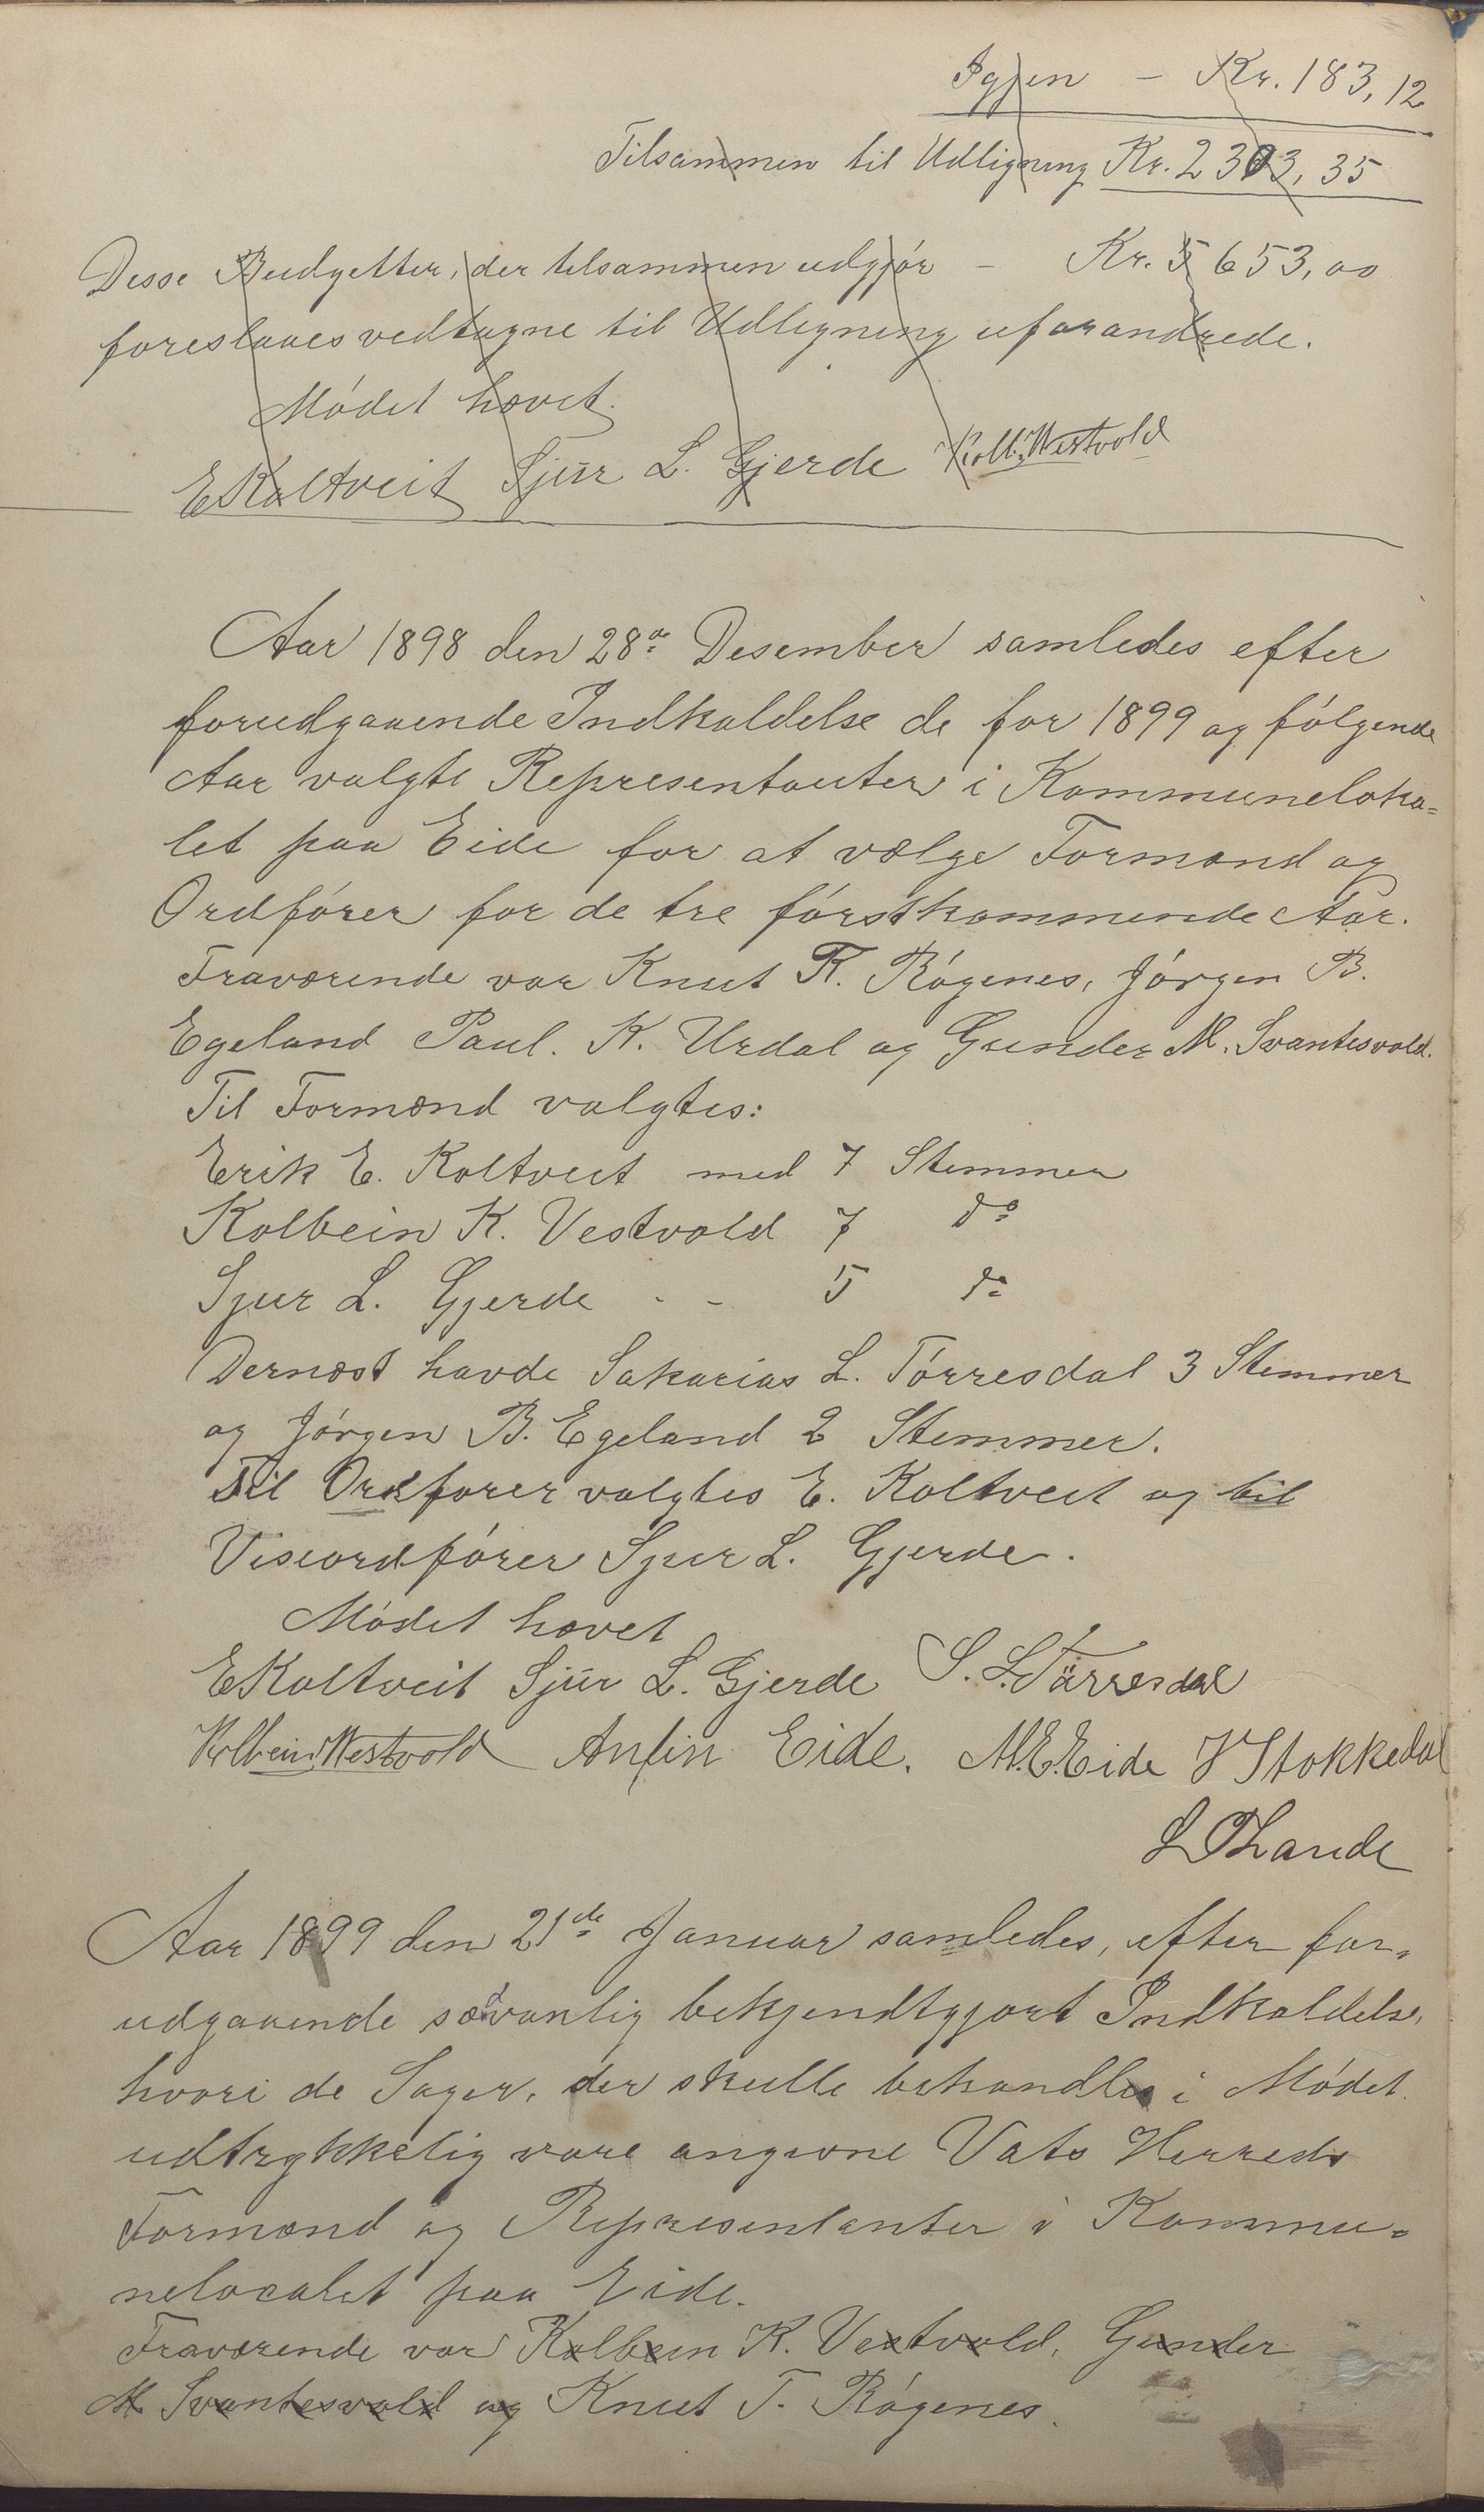 Igjen - Kr. 183,12
Tilsammen til Udligning Kr. 2303,35
Disse Budgetter, der tilsammen udgjør - Kr. 5653,00
foreslaaes vedtagne til Udligning uforandrede.
Mødet hævet.
E Koltveit Sjur L. Gjerde Kolb. Westvold
Aar 1898 den 28de Desember samledes efter
forudgaaende Indkaldelse de for 1899 og følgende
Aar valgte Representanter i Kommuneloka=
let paa Eide for at vælge Formænd og
Ordfører for de tre førstkommende Aar.
Fraværende var Knut T. Røgenes, Jørgen B.
Egeland Paul. K. Urdal og Gunder M. Svantesvold.
Til Formænd valgtes:
Erik E. Koltveit med 7 Stemmer
Kolbein K. Vestvold 7 do
Sjur L. Gjerde - - 5 do
Dernæst havde Sakarias L. Tørresdal 3 Stemmer
og Jørgen B. Egeland 2 Stemmer.
Til Ordfører valgtes E. Koltveit og til
Viseordfører Sjur L. Gjerde.
Mødet hævet
E Koltveit Sjur L. Gjerde S. L. Tørresdal
Kolbein Westvold Anfin Eide. M.E. Eide V Stokkedal
L O Lande
Aar 1899 den 21de Januar samledes, efter for=
udgaaende sædvanlig bekjendtgjort Indkaldelse,
hvori de Sager, der skulle behandles i Mødet
udtrykkelig vare angivne Vats Herreds
Formænd og Representanter i Kommu=
nelocalet paa Eide.
Fraværende var Kolbein K. Vestvold, Gunder
M Svantesvold og Knut T. Røgenes.